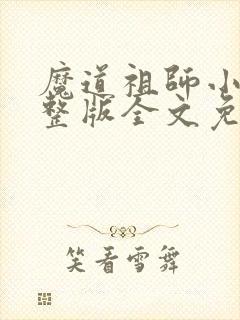 魔道祖師小
整版全文免
笑看雪舞